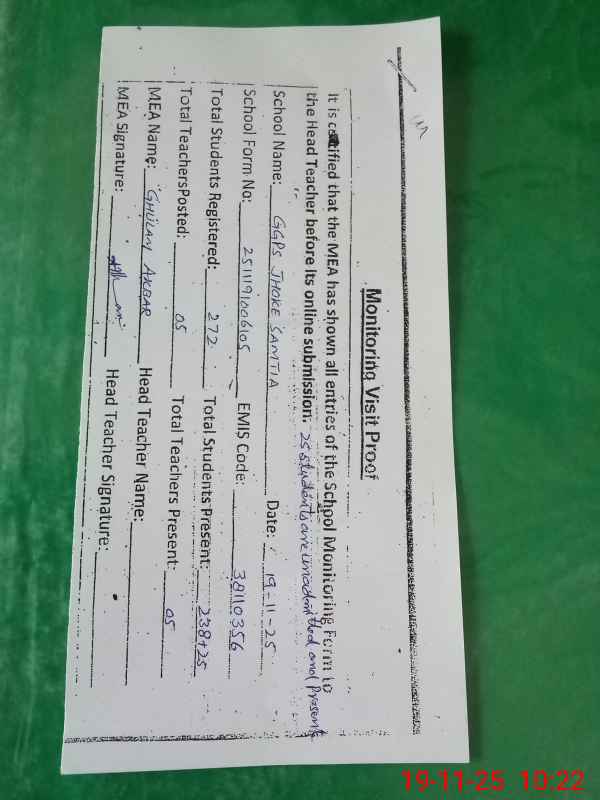 Monitoring Visit Proof
It is certified that the MEA has shown all entries of the School Monitoring Form to
the Head Teacher before its online submission. 25 students are unadmitted and present
School Name: GGPS JHOKE SAMTIA Date: 19-11-25
School Form No: 2511191006105 EMIS Code: 38110356
Total Students Registered: 272 Total Students Present: 238+25
Total TeachersPosted: 05 Total Teachers Present: 05
MEA Name: GHULAM AKBAR Head Teacher Name:
MEA Signature: Head Teacher Signature:
19-11-25 10:22